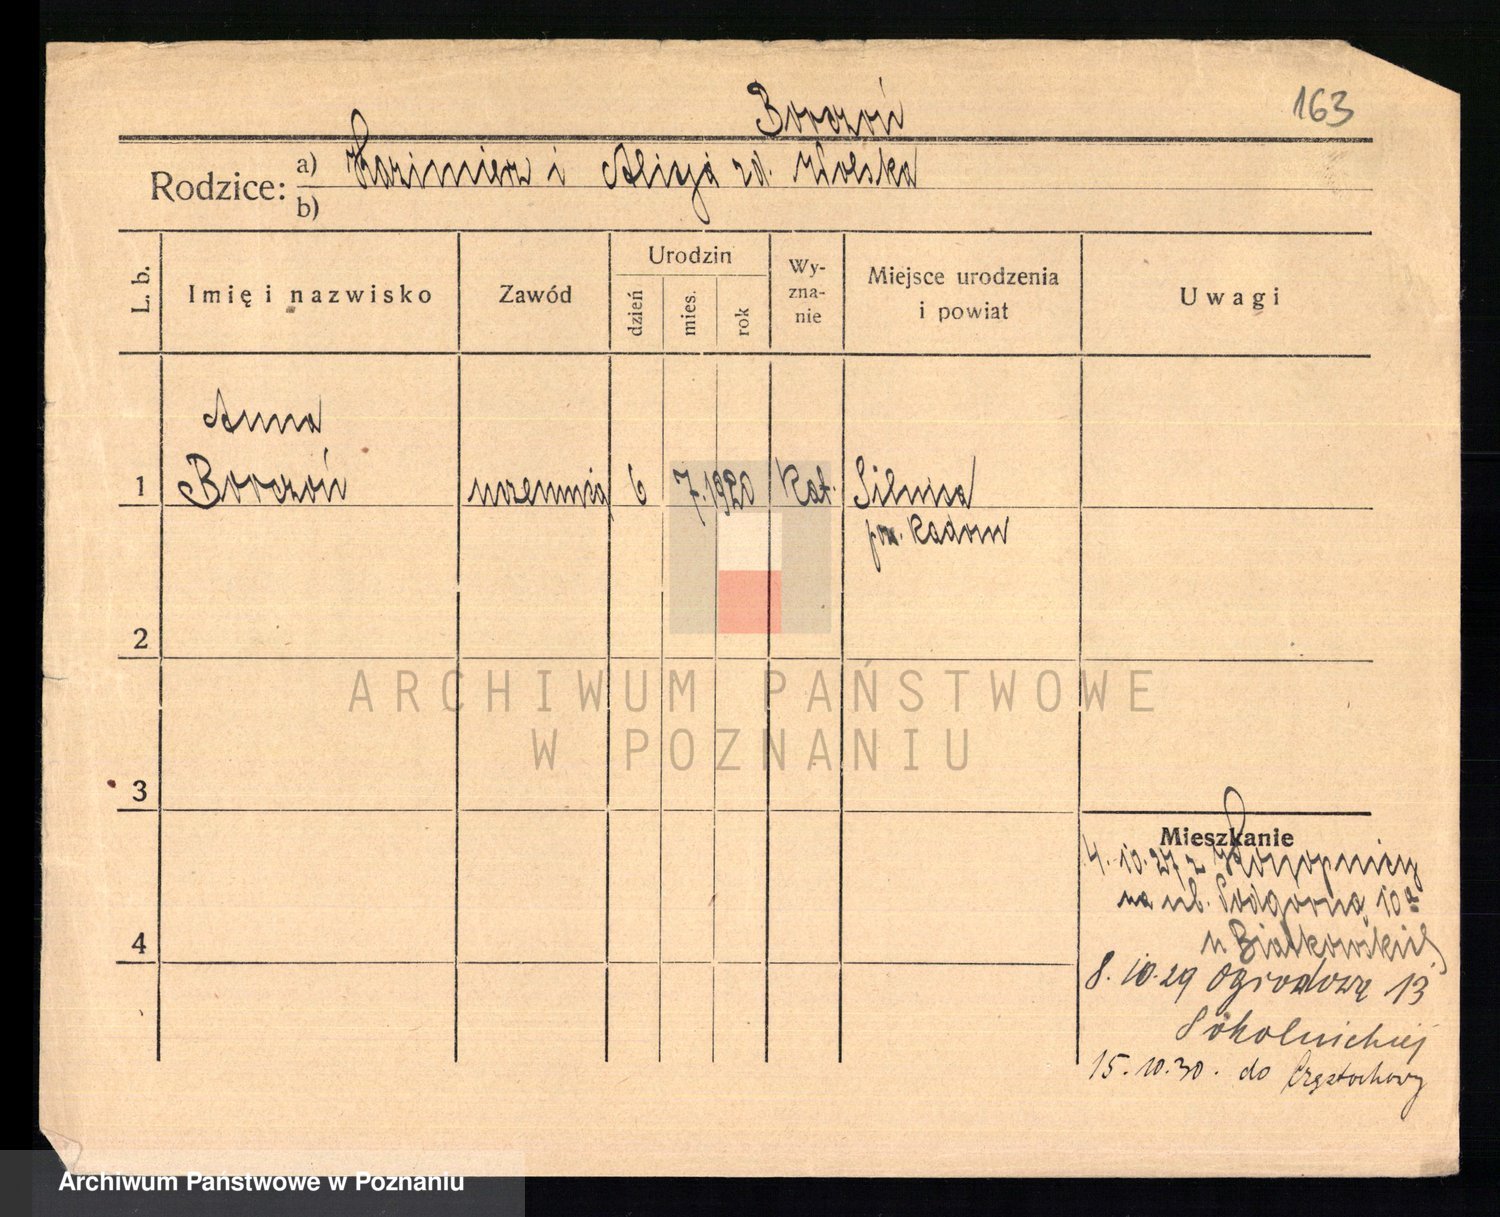 163
Borczoń
Rodzice: a) Kazimierz i Alicja zd. Wolska
b)
L. b.
Imię i nazwisko
Zawód
Urodzin
dzień
mies.
rok
Wy-
zna-
nie
Miejsce urodzenia
i powiat
Uwagi
Anna
1 Borczoń uczennica 6 7. 1920 Kat. Silnica
pow. Radom
2
ARCHIWUM PAŃSTWOWE
W POZNANIU
3
Mieszkanie
4. 10. 27 z
na ul. Podgórną 10a
u Białkowskiej
4
8. 10. 29 Ogrodowa 13
Sokolnickiej
15. 10. 30. do Częstochowy
Archiwum Państwowe w Poznaniu